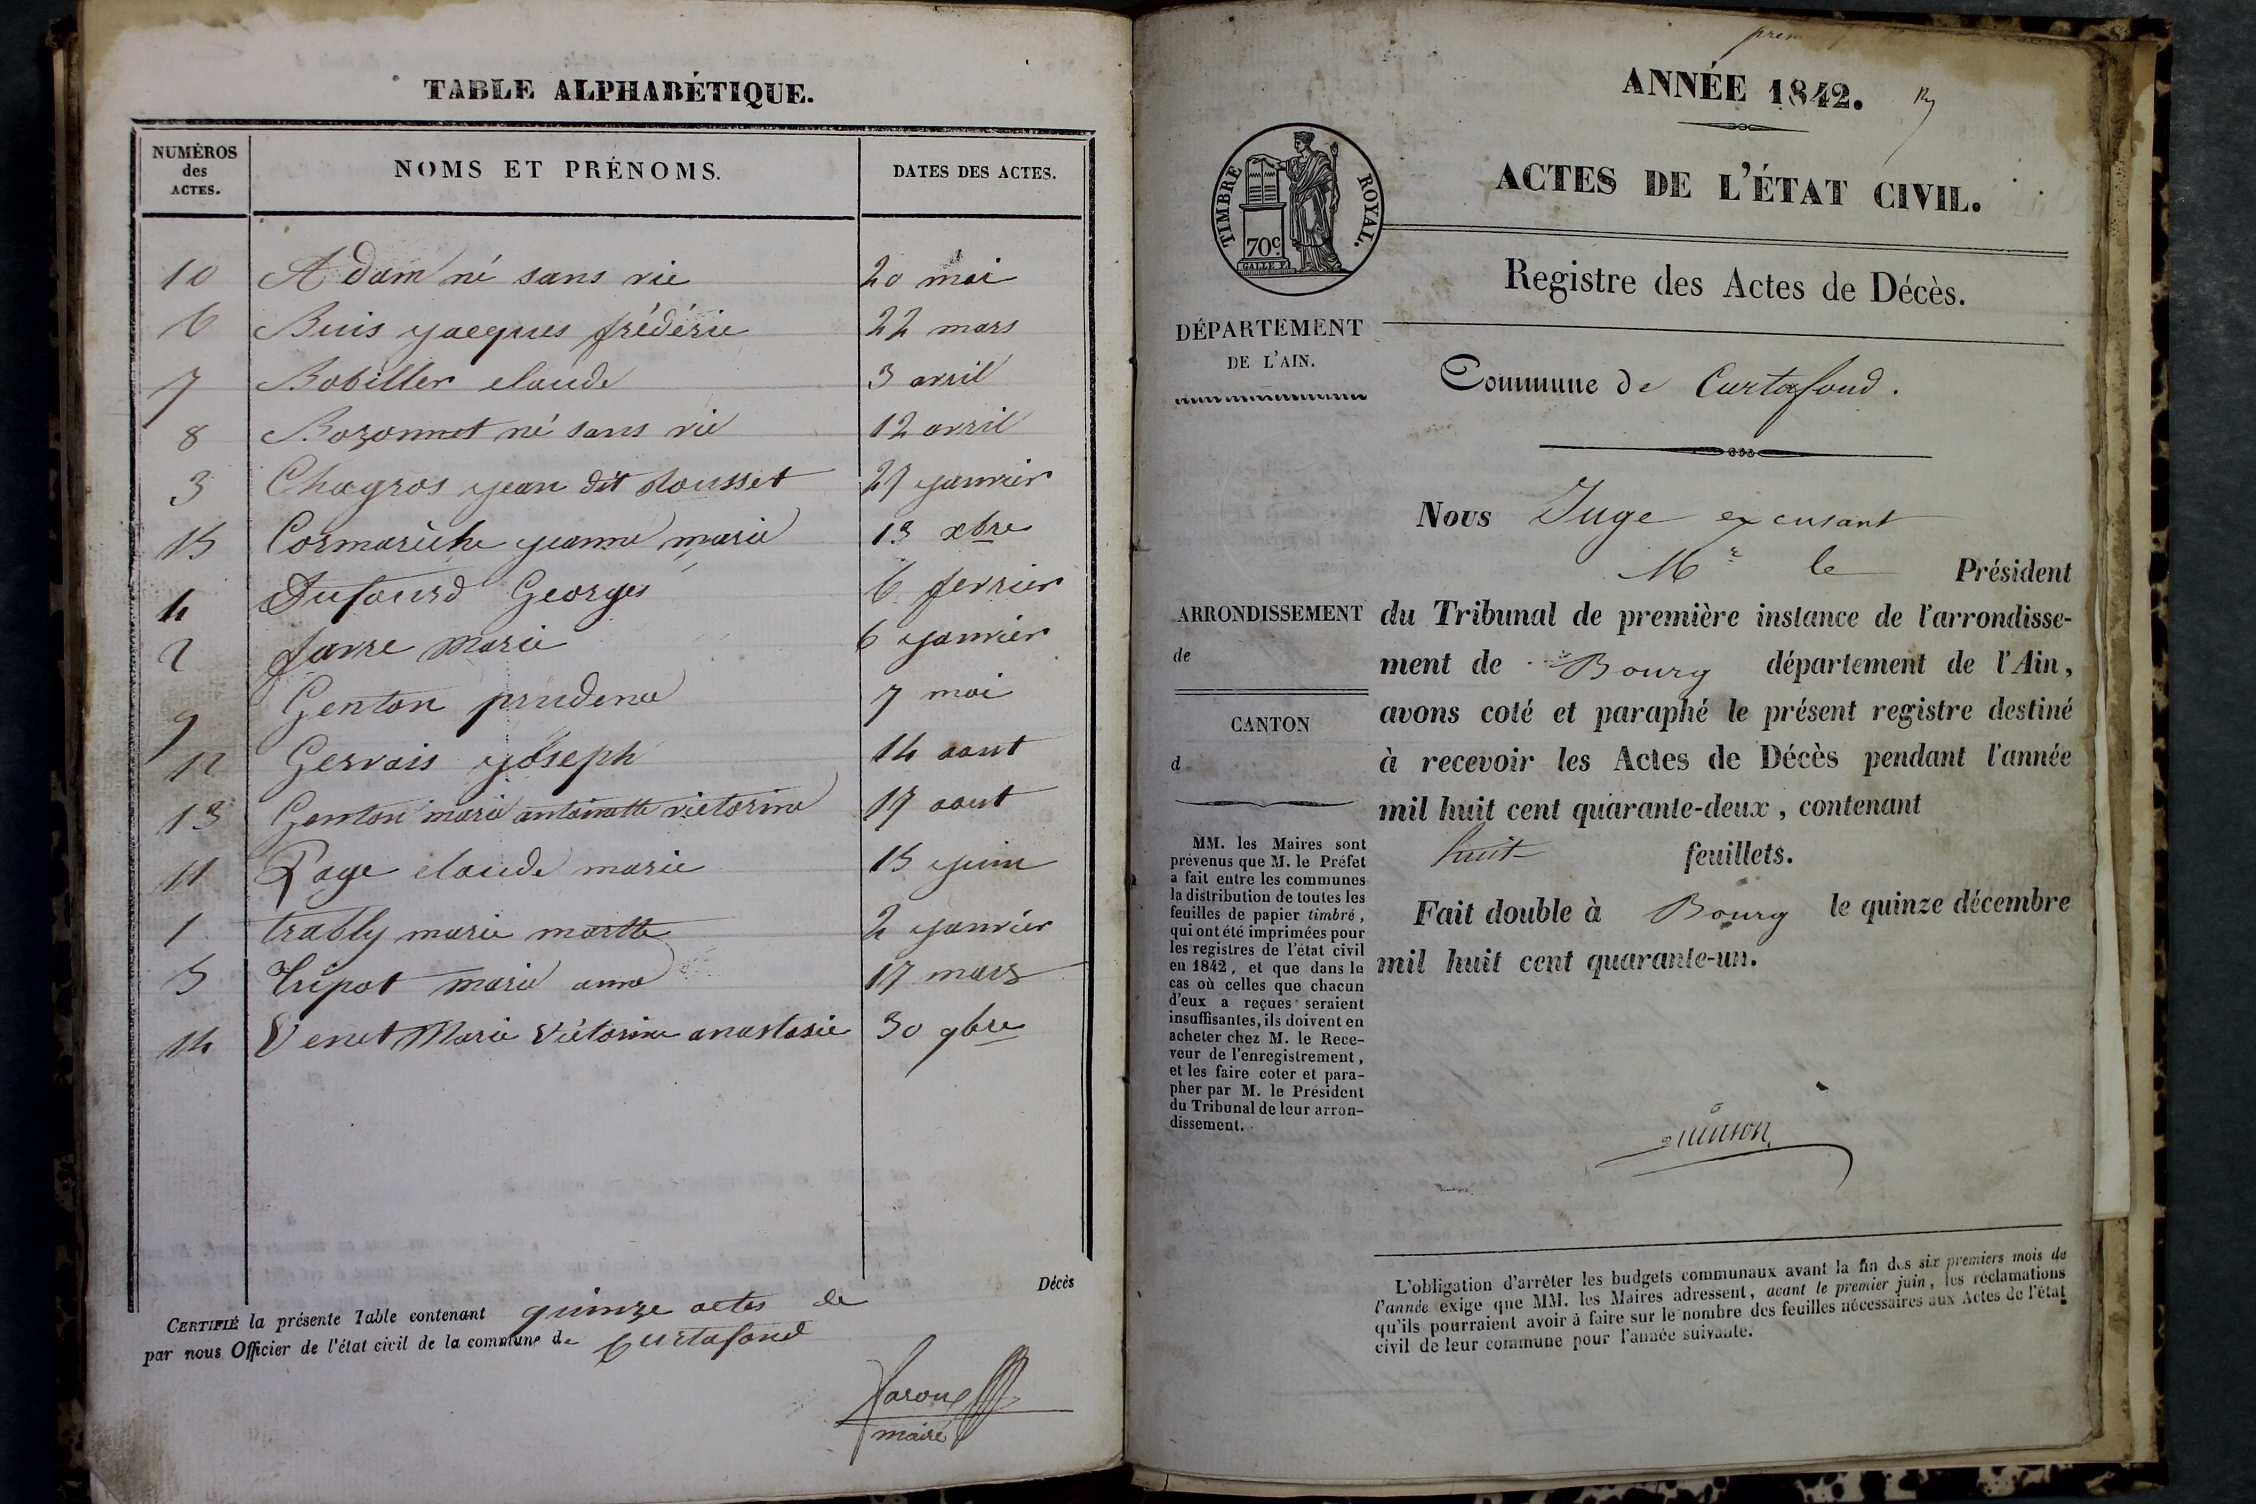 TABLE ALPHABÉTIQUE.
NUMÉROS
des
ACTES.
NOMS ET PRÉNOMS.
DATES DES ACTES.
10 Adam né sans vie 20 mai
6 Buis jacques frédéric 22 mars
7 Bobiller claude 3 avril
8 Bozonnet né sans vie 12 avril
3 Chagros jean dit 27 janvier
15 Cormarèche jeanne marie 13 xbre
4 Dufourd Georges 6 fevrier
2 favre Marie 6 janvier
9 Genton prudence 7 mai
12 Gervais joseph 14 aout
13 Genton marie antoinette victorine 17 aout
11 Page claude marie 15 juin
1 trably marie marthe 2 janvier
5 tripot marie anne 17 mars
14 Venet Marie Victorine anastasie 30 9bre
Décès
CERTIFIÉ la présente Table contenant quinze actes de
par nous Officier de l'état civil de la commune de Curtafond
maire
prem
ANNÉE 1842.
ACTES DE L'ÉTAT CIVIL.
TIMBRE ROYAL.
70c
Registre des Actes de Décès.
DÉPARTEMENT
DE L'AIN.
Commune de Curtafond.
Nous Juge excusant
Mr le Président
ARRONDISSEMENT
de
CANTON
d
du Tribunal de première instance de l'arrondisse-
ment de Bourg département de l'Ain,
avons coté et paraphé le présent registre destiné
à recevoir les Actes de Décès pendant l'année
mil huit cent quarante-deux, contenant
huit feuillets.
Fait double à Bourg le quinze décembre
mil huit cent quarante-un.
MM. les Maires sont
prévenus que M. le Préfet
a fait entre les communes
la distribution de toutes les
feuilles de papier timbré,
qui ont été imprimées pour
les registres de l'état civil
en 1842, et que dans le
cas où celles que chacun
d'eux a reçues seraient
insuffisantes, ils doivent en
acheter chez M. le Rece-
veur de l'enregistrement,
et les faire coter et para-
pher par M. le Président
du Tribunal de leur arron-
dissement.
L'obligation d'arrêter les budgets communaux avant la fin des six premiers mois de
l'année exige que MM. les Maires adressent, avant le premier juin, les réclamations
qu'ils pourraient avoir à faire sur le nombre des feuilles nécessaires aux Actes de l'état
civil de leur commune pour l'année suivante.